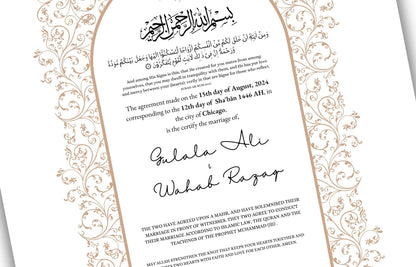 بِسْمِ اللهِ الرَّحْمٰنِ الرَّحِيْمِ
وَمِنْ آيَاتِهِ أَنْ خَلَقَ لَكُمْ مِنْ أَنْفُسِكُمْ أَزْوَاجًا لِتَسْكُنُوا إِلَيْهَا وَجَعَلَ بَيْنَكُمْ مَوَدَّةً
وَرَحْمَةً إِنَّ فِي ذَٰلِكَ لَآيَاتٍ لِقَوْمٍ يَتَفَكَّرُونَ
And among His Signs is this, that He created for you mates from among
yourselves, that you may dwell in tranquility with them, and He has put love
and mercy between your (hearts): verily in that are Signs for those who reflect.
The agreement made on the 15th day of August, 2024
corresponding to the 12th day of Sha'bān 1446 AH, in
the city of Chicago,
is the certify the marriage of,
Gulala Ali
&
Wahab Razaq
THE TWO HAVE AGREED UPON A MAHR, AND HAVE SOLEMNISED THEIR
MARRIAGE IN FRONT OF WITNESSES. THEY TWO AGREE TO CONDUCT
THEIR MARRIAGE ACCORDING TO ISLAMIC LAW, THE QURAN AND THE
TEACHINGS OF THE PROPHET MUHAMMAD
MAY ALLAH STRENGTHEN THE KNOT THAT KEEPS YOUR HEARTS TOGETHER AND
TWO HEARTS WITH FAITH AND LOVE FOR EACH OTHER. AMEEN.